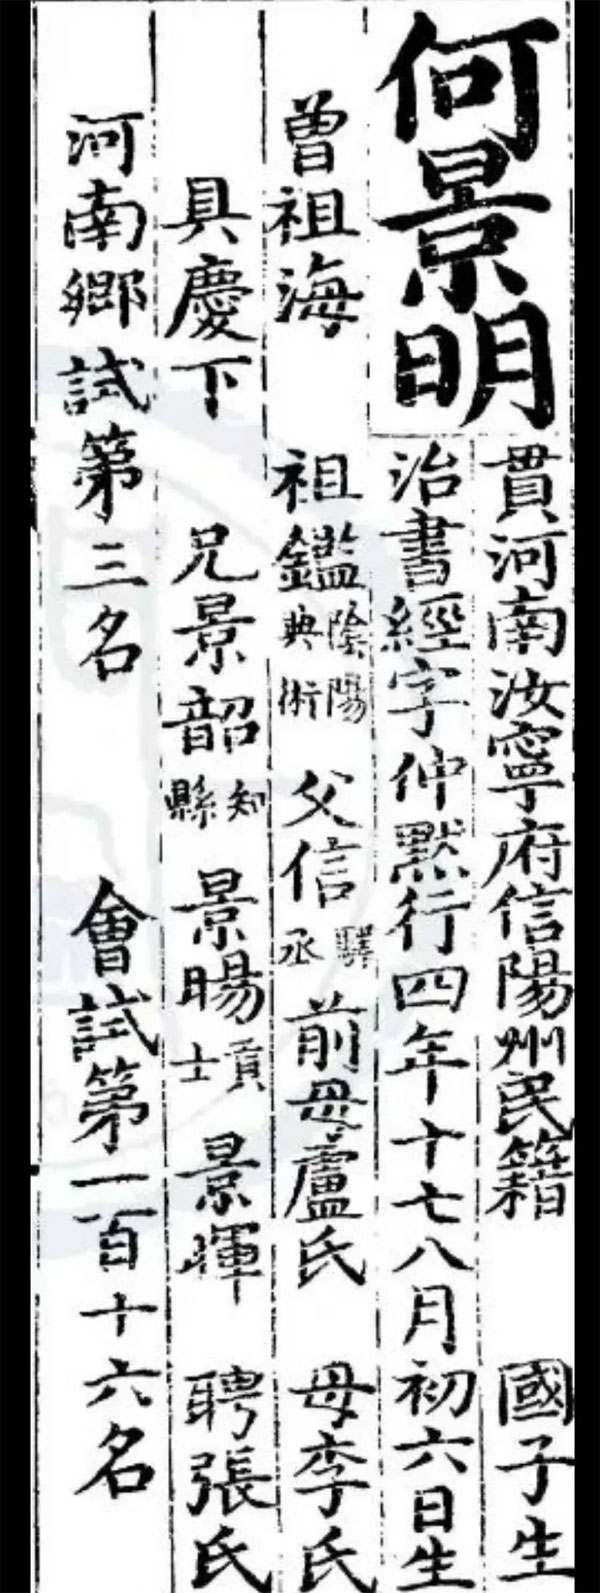 何景明
貫河南汝寧府信陽州民籍 國子生
治書經字仲默行四年十七八月初六日生
曾祖海 祖鑑陰陽典術 父信驛丞 前母盧氏 母李氏
具慶下 兄景韶知縣 景暘貢士 景暉 聘張氏
河南鄉試第三名 會試第一百十六名